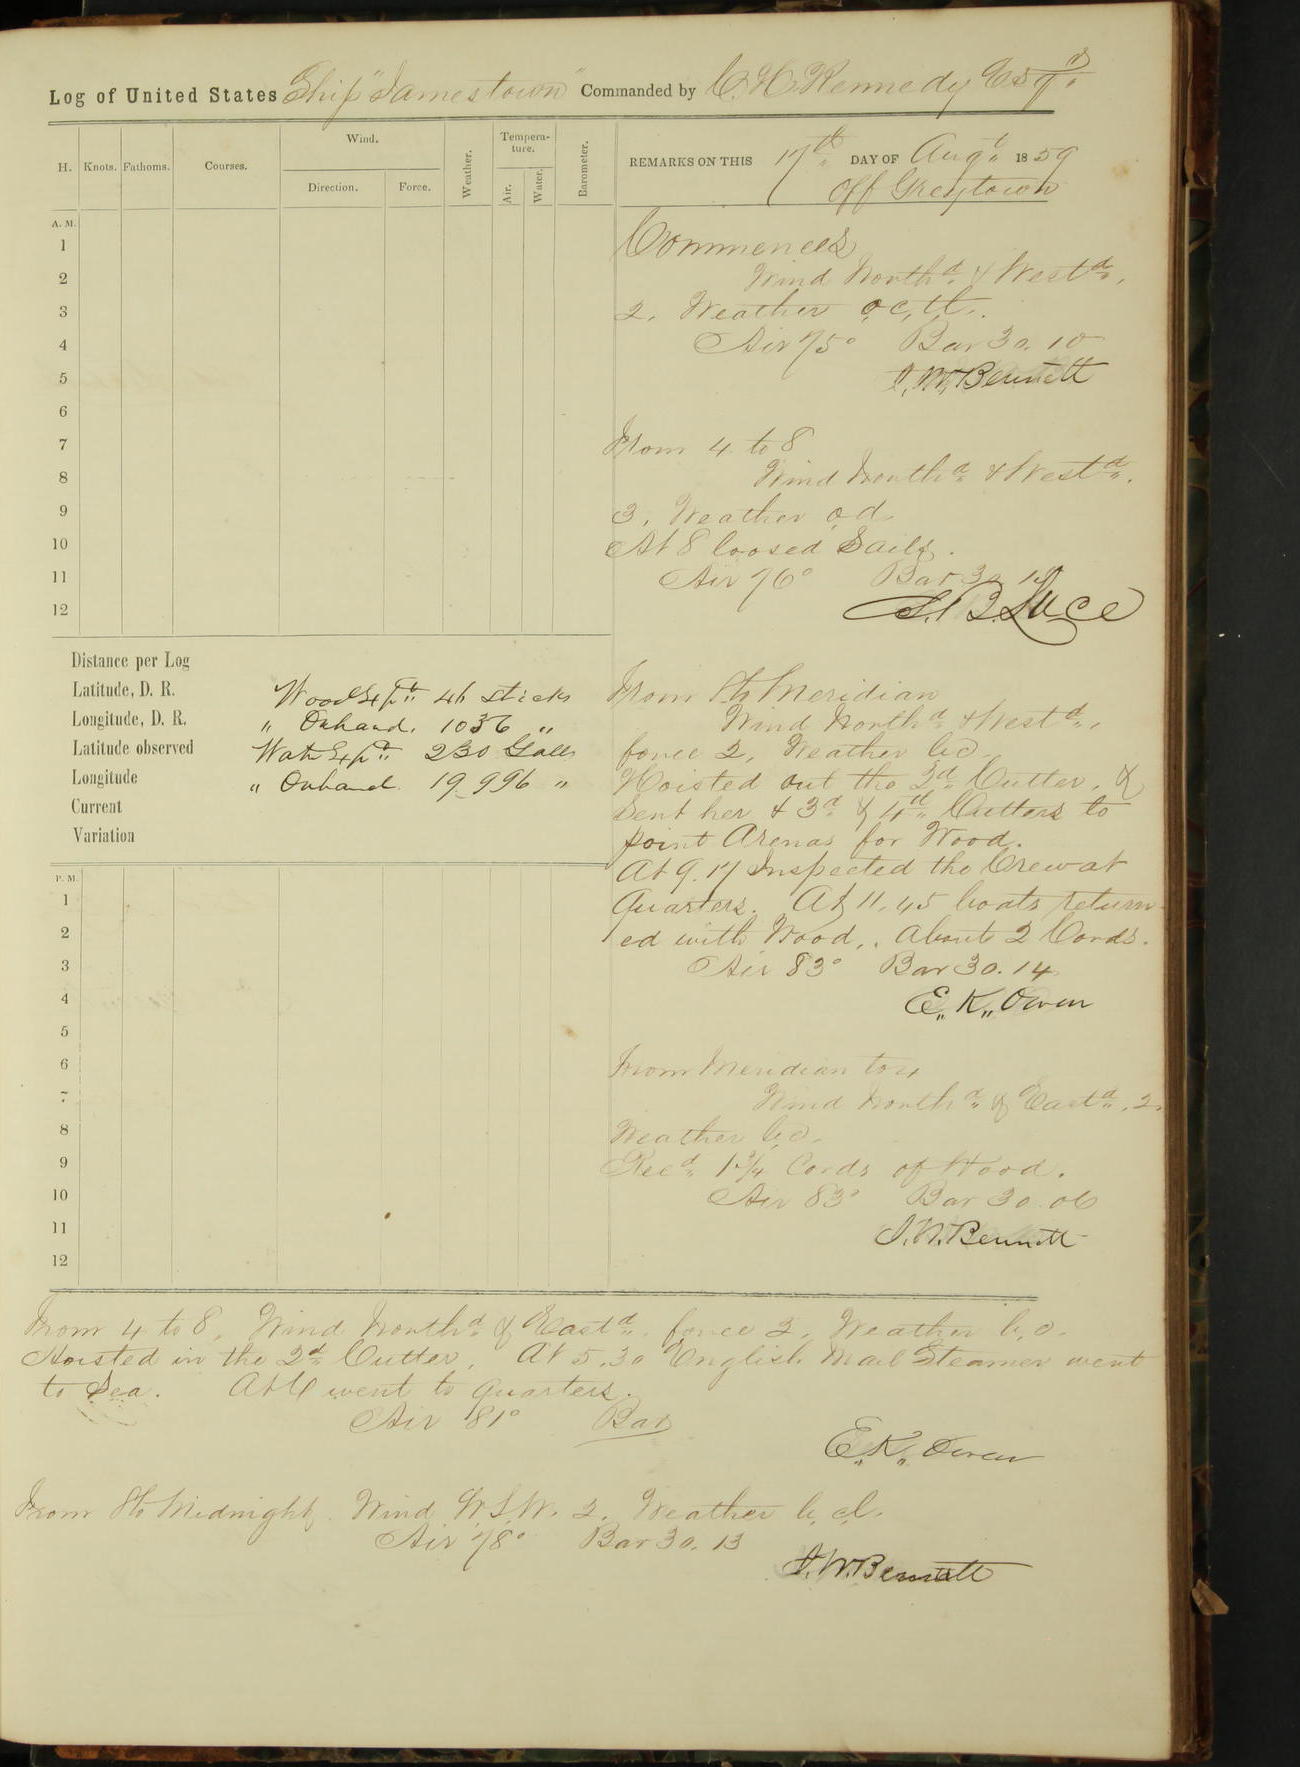 Log of United States Ship "Jamestown" Commanded by C. H. Kennedy Esqr.
H. Knots. Fathoms. Courses. Wind. Direction. Force. Weather. Tempera-ture. Air. Water. Barometer.
REMARKS ON THIS 17th DAY OF Augt. 1859
off Greytown
A. M.
1
2
3
4
5
6
7
8
9
10
11
12
Commences
Wind Northd. & Westd.
2. Weather o,c,t,.
Air 75° Bar 30.10
J. W. Bennett
From 4 to 8
Wind Northd. & Westd.
3. Weather o,d.
At 8 loosed Sails.
Air 76° Bar 30
S. B. Luce
Distance per Log
Latitude, D. R.
Longitude, D. R.
Latitude observed
Longitude
Current
Variation
Wood Expd. 46 sticks
" Onhand. 1036 "
Wat Expd. 230 Galls
" Onhand. 19,996 "
From 8 to Meridian
Wind Northd. & Westd.,
force 2, Weather b,c.
Hoisted out the 2d. Cutter, &
Sent her & 3d. & 4th. Cutters to
point Arenas for Wood.
At 9.17 Inspected the Crew at
Quarters. At 11.45 boats return-
ed with Wood,. About 2 Cords.
Air 83° Bar 30.14
E. K. Owen
P. M.
1
2
3
4
5
6
7
8
9
10
11
12
From Meridian to 4
Wind Northd. & Eastd., 2.
Weather b,c.
Recd. 1 3/4 Cords of Wood.
Air 83° Bar 30.06
J. W. Bennett
From 4 to 8, Wind Northd. & Eastd. force 2, Weather b,c.
Hoisted in the 2d. Cutter, At 5.30 English Mail Steamer went
to Sea. At 6 went to quarters.
Air 81° Bar
E. K. Owen
From 8 to Midnight. Wind W.S.W. 2. Weather b,c,l.
Air 78° Bar 30.13
J. W. Bennett